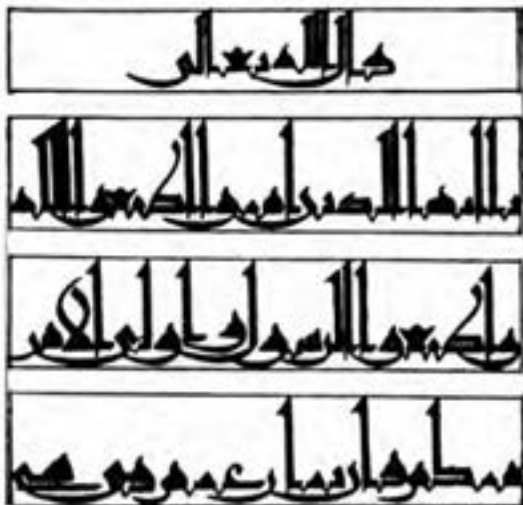 قال الله تعالى
يا أيها الذين امنوا اطيعوا الله
واطيعوا الرسول واولي الامر
منكم فان تنازعتم في شي